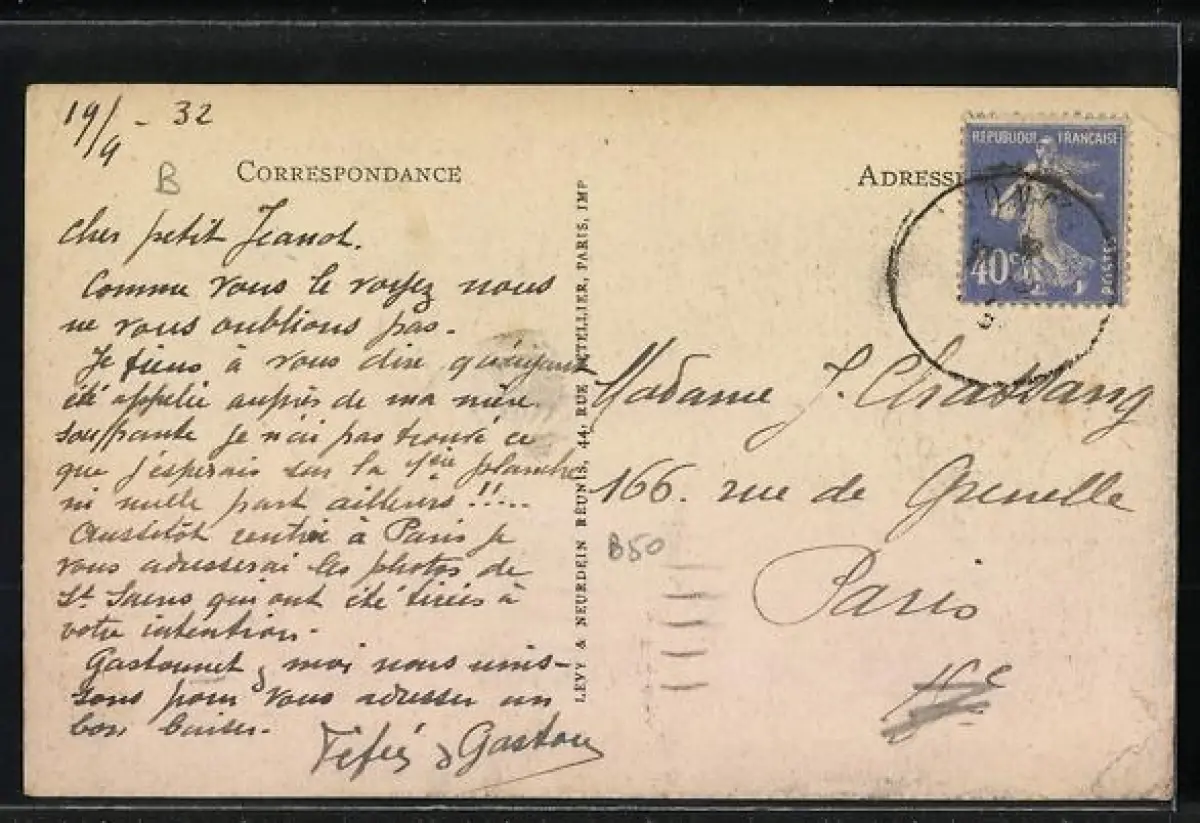 19/9 - 32
B
CORRESPONDANCE
Cher petit Jeanot.
Comme vous le voyez nous
ne vous oublions pas.
Je tiens à vous dire qu'ayant
été appelée auprès de ma mère
souffrante je n'ai pas trouvé ce
que j'esperais sur la 1ère planche
ni nulle part ailleurs !!...
Aussitôt rentrée à Paris je
vous adresserai les photos de
St Saens qui ont été tirées à
votre intention.
Gastounet & moi nous unis-
sons pour vous adresser un
bon baiser.
Féfée & Gaston
LÉVY & NEURDEIN RÉUNIS, 44, RUE LETELLIER, PARIS, IMP
ADRESSE
RÉPUBLIQUE FRANÇAISE
40c
POSTES
Madame J. Chastang
166. rue de Grenelle
Paris
B50